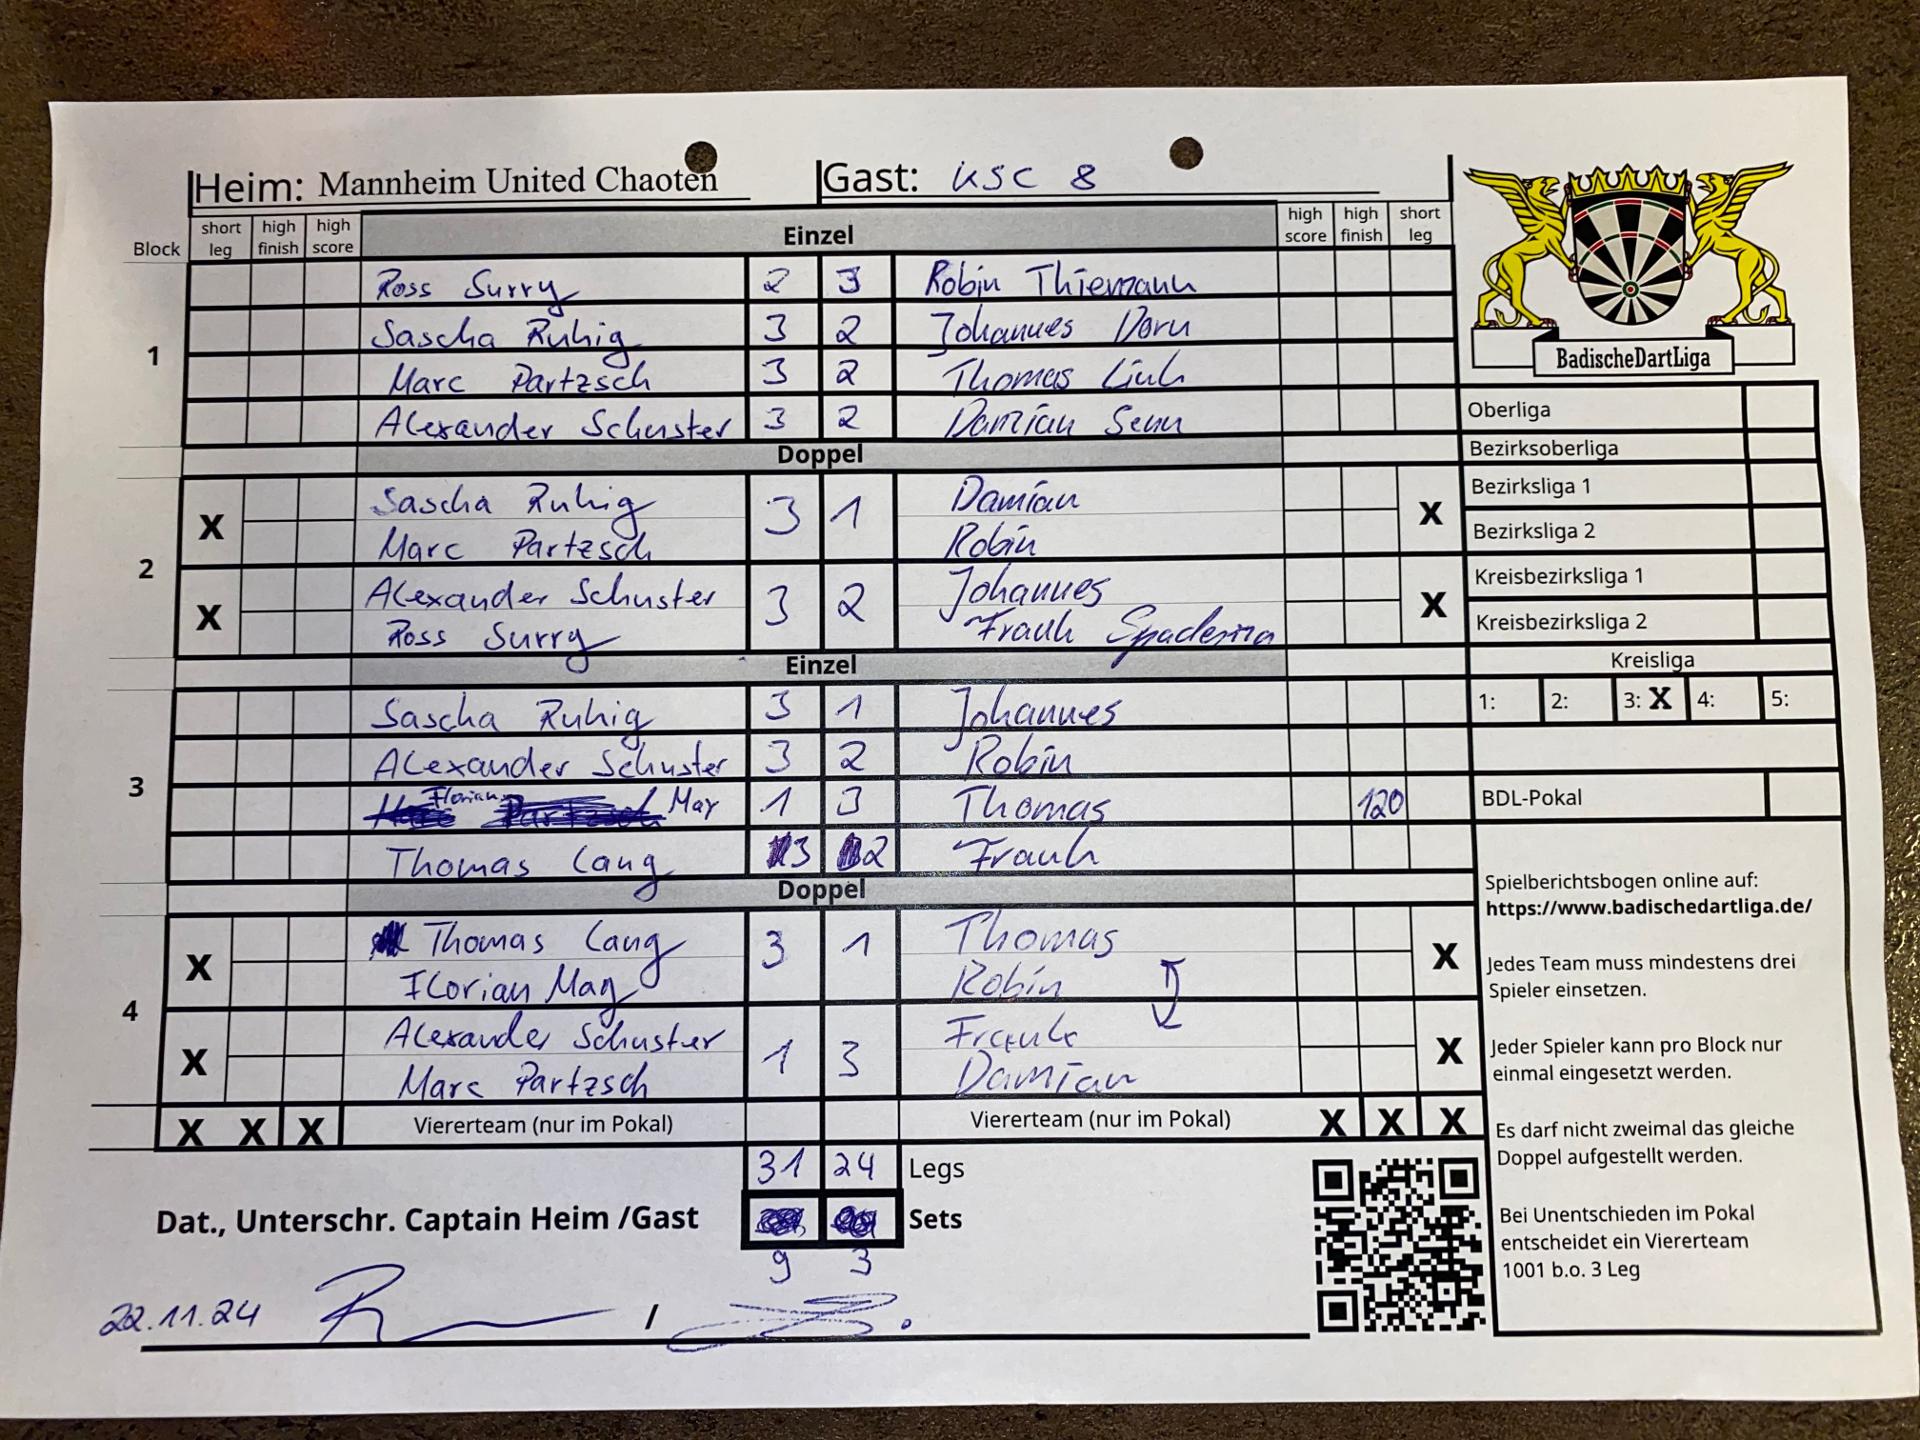 Heim: Mannheim United Chaoten Gast: KSC 8
Block short leg high finish high score Einzel high score high finish short leg
1
Ross Surry 2 3 Robin Thiemann
Sascha Ruhig 3 2 Johannes Dorn
Marc Partzsch 3 2 Thomas Link
Alexander Schuster 3 2 Damian Senn
Doppel
2
X Sascha Ruhig 3 1 Damian X
Marc Partzsch Robin
X Alexander Schuster 3 2 Johannes X
Ross Surry Frank Spaderna
Einzel
3
Sascha Ruhig 3 1 Johannes
Alexander Schuster 3 2 Robin
Florian May 1 3 Thomas 120
Thomas Lang 3 2 Frank
Doppel
4
X Thomas Lang 3 1 Thomas X
Florian May Robin
X Alexander Schuster 1 3 Frank X
Marc Partzsch Damian
X X X Viererteam (nur im Pokal) Viererteam (nur im Pokal) X X X
31 24 Legs
Dat., Unterschr. Captain Heim /Gast Sets
9 3
22.11.24 /
BadischeDartLiga
Oberliga
Bezirksoberliga
Bezirksliga 1
Bezirksliga 2
Kreisbezirksliga 1
Kreisbezirksliga 2
Kreisliga
1: 2: 3: X 4: 5:
BDL-Pokal
Spielberichtsbogen online auf:
https://www.badischedartliga.de/
Jedes Team muss mindestens drei
Spieler einsetzen.
Jeder Spieler kann pro Block nur
einmal eingesetzt werden.
Es darf nicht zweimal das gleiche
Doppel aufgestellt werden.
Bei Unentschieden im Pokal
entscheidet ein Viererteam
1001 b.o. 3 Leg